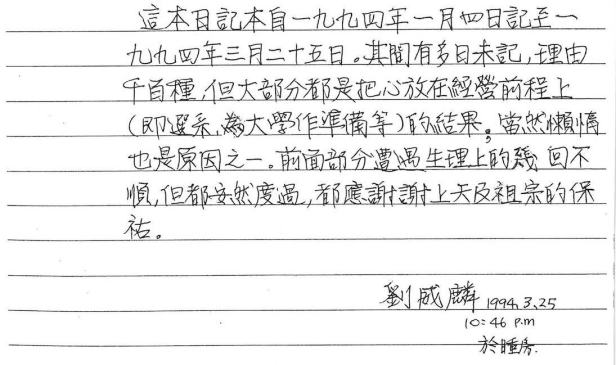 這本日記本自一九九四年一月四日記至一
九九四年三月二十五日。其間有多日未記,理由
千百種,但大部分都是把心放在經營前程上
(即選系,為大學作準備等)的結果;當然懶惰
也是原因之一。前面部分遭遇生理上的幾回不
順,但都安然度過,都應謝謝上天及祖宗的保
祐。
劉威麟 1994.3.25
10:46 p.m
於睡房.